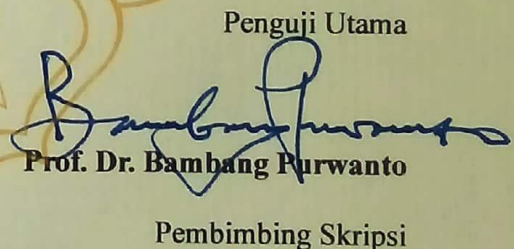 Penguji Utama
Prof. Dr. Bambang Purwanto
Pembimbing Skripsi